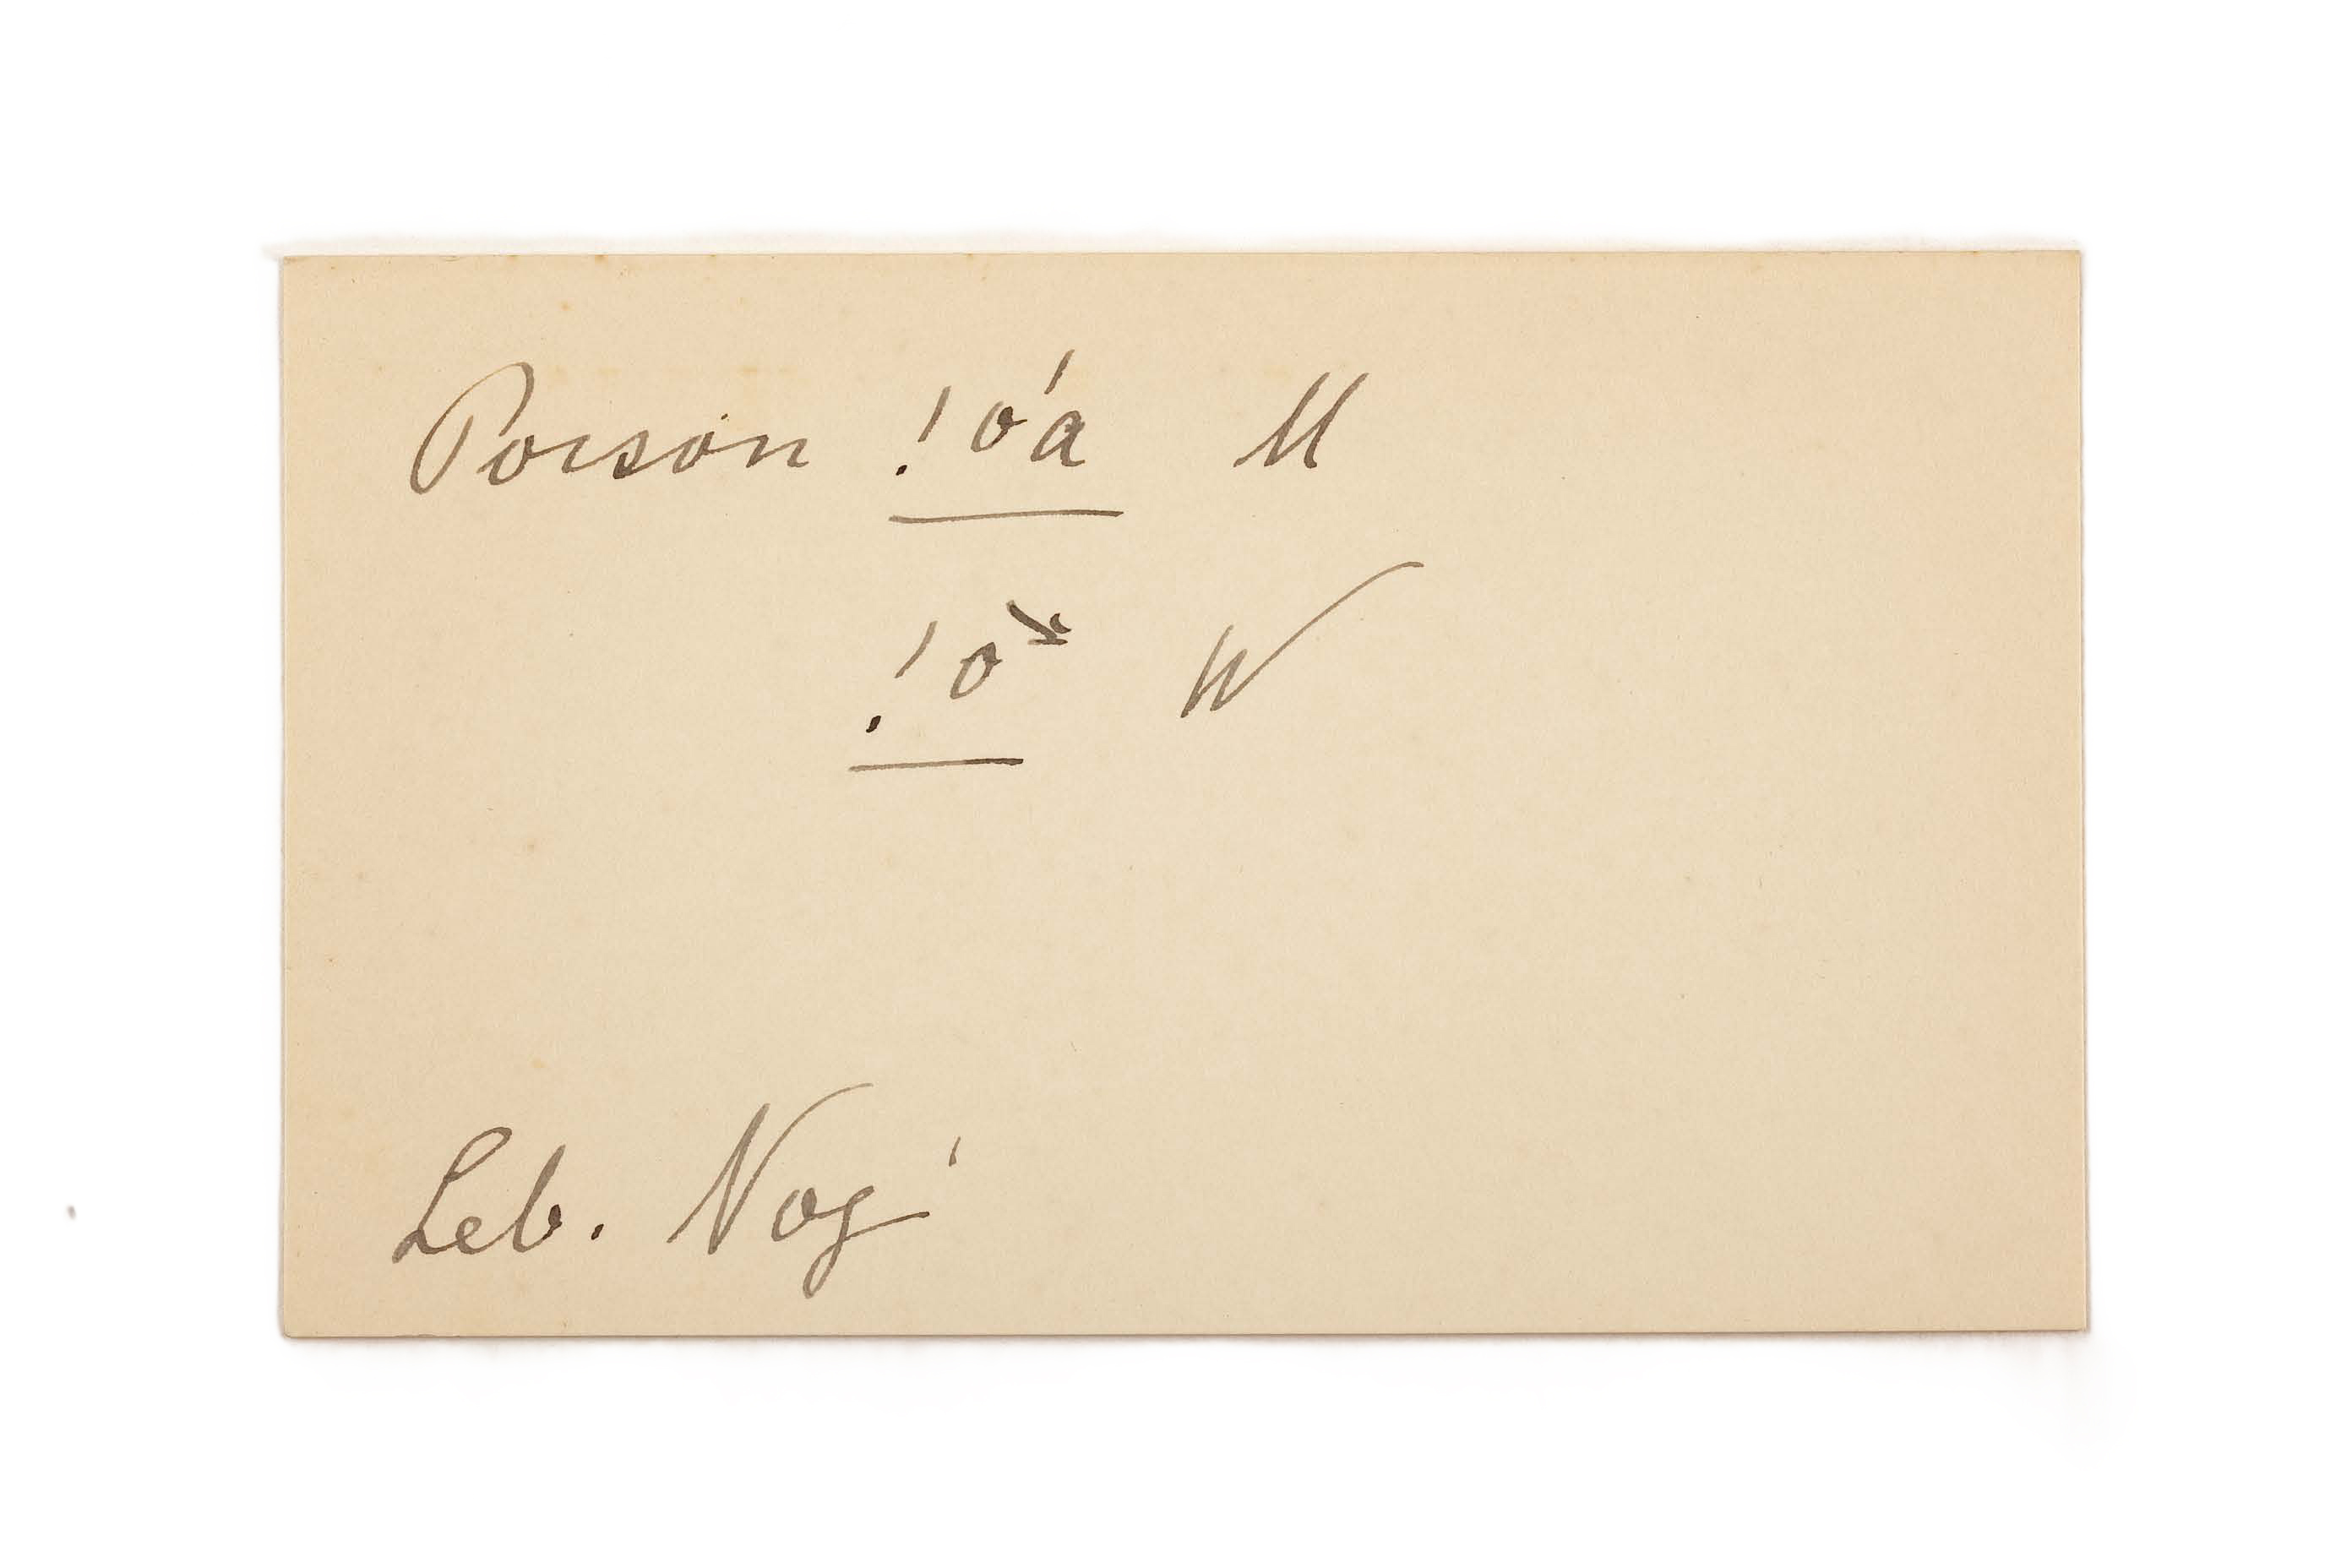 Poison !óá M
!ò W
Leb. Nog'